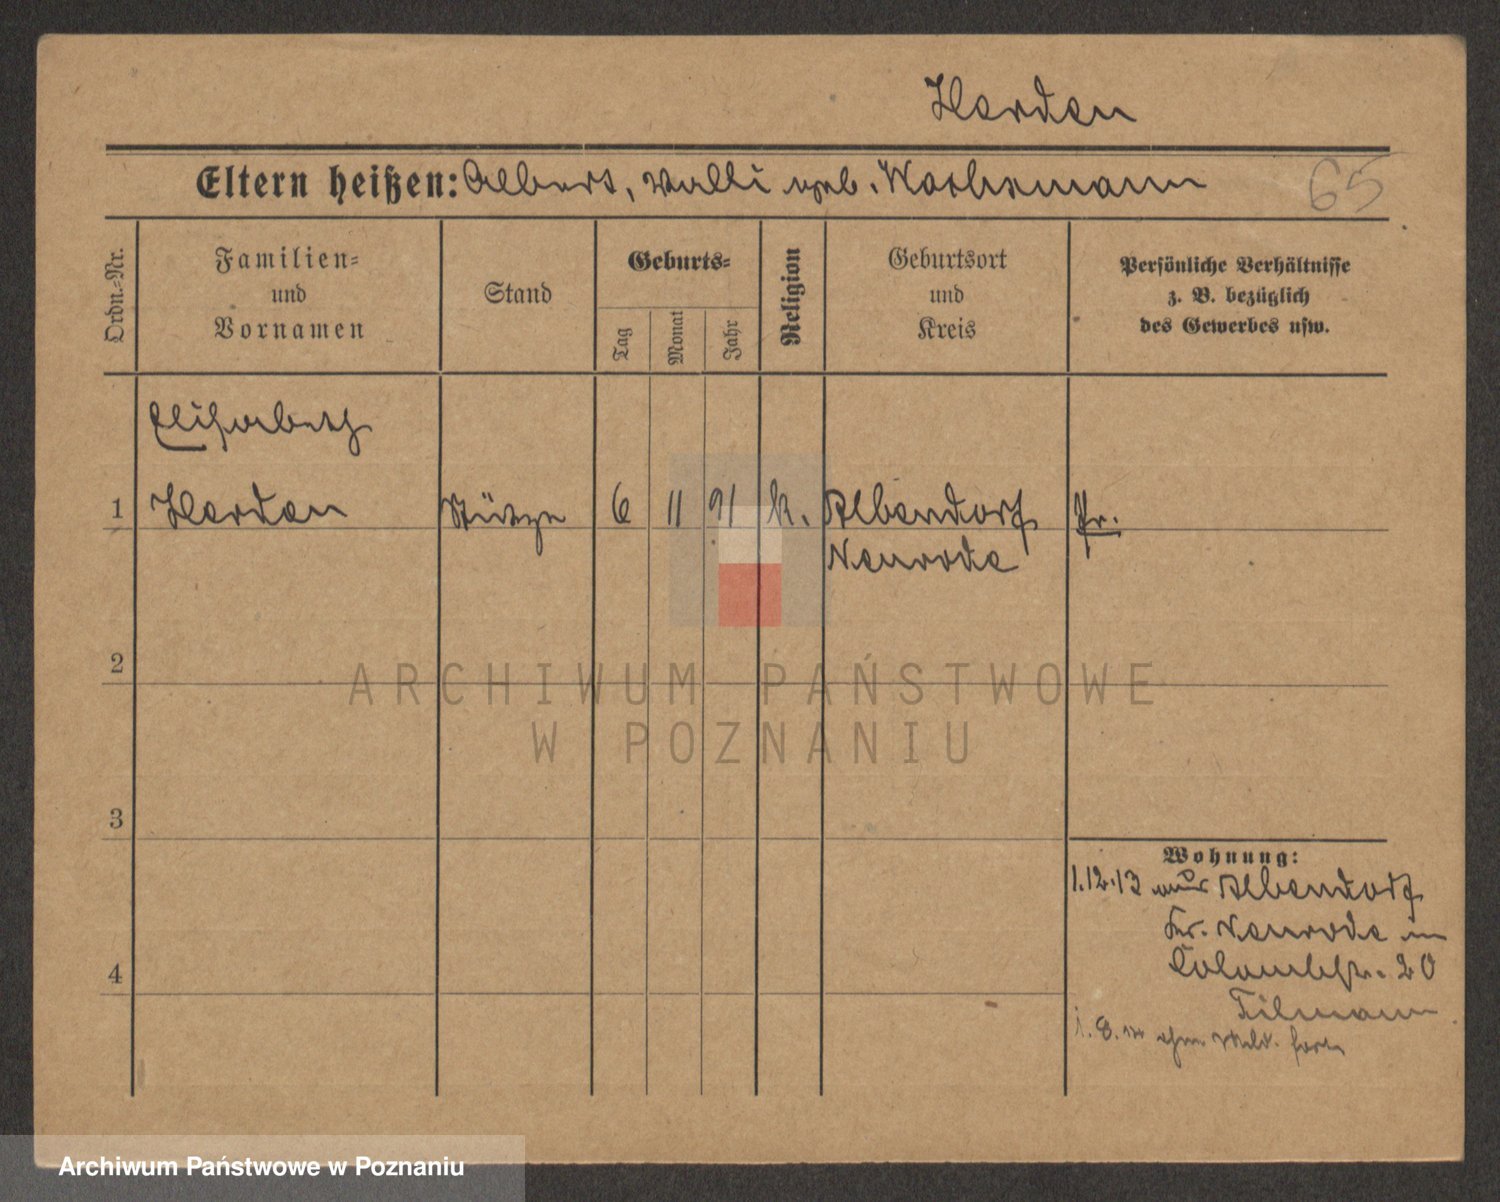 Hardan
65
Eltern heißen: Albert, Valli geb. Wachsmann
Ordn.-Nr.
Familien-
und
Vornamen
Stand
Geburts-
Tag
Monat
Jahr
Religion
Geburtsort
und
Kreis
Persönliche Verhältnisse
z. B. bezüglich
des Gewerbes usw.
Elisabeth
1 Hardan Stütze 6 11 91 k. Albendorf Pr.
Neurode
2
3
4
Wohnung:
1.12.13 aus Albendorf
Kr. Neurode in
Colombstr. 20
Tilmann
i. 8. ohne Meld. fort
ARCHIWUM PAŃSTWOWE
W POZNANIU
Archiwum Państwowe w Poznaniu